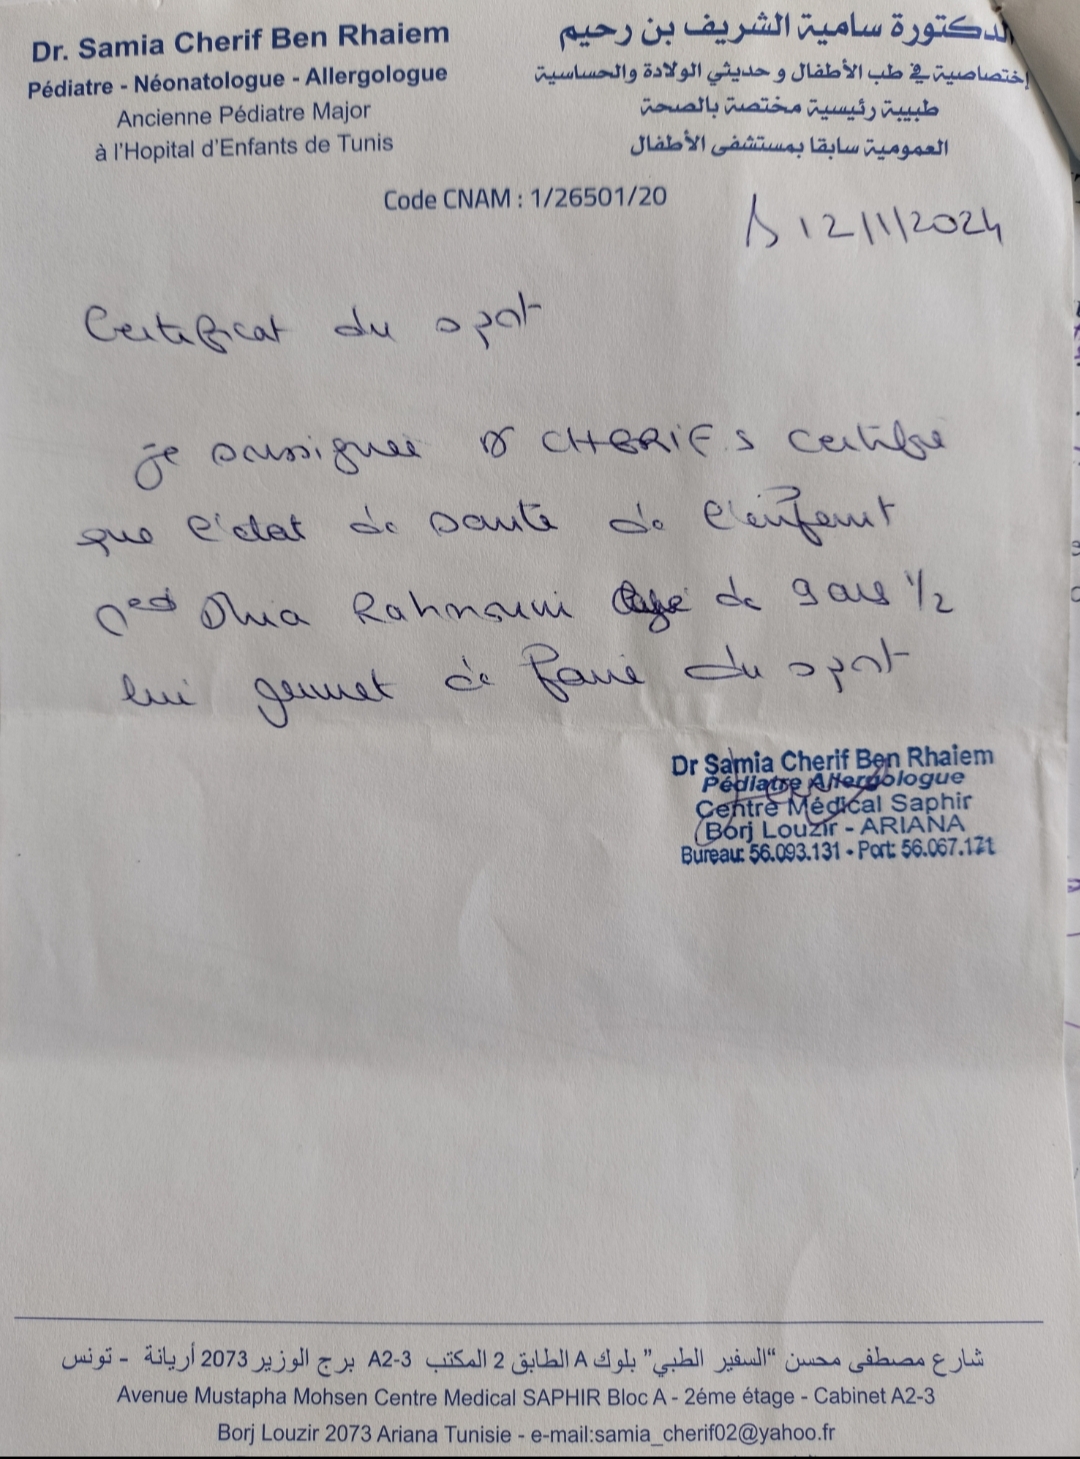 Dr. Samia Cherif Ben Rhaiem
Pédiatre - Néonatologue - Allergologue
Ancienne Pédiatre Major
à l'Hopital d'Enfants de Tunis
الدكتورة سامية الشريف بن رحيم
إختصاصية في طب الأطفال و حديثي الولادة والحساسية
طبيبة رئيسية مختصة بالصحة
العمومية سابقا بمستشفى الأطفال
Code CNAM : 1/26501/20
12/11/2024
Certificat du sport
je soussignée Dr CHERIF S certifie
que l'état de santé de l'enfant
Med Dhia Rahmouni agé de 9 ans 1/2
lui permet de faire du sport
Dr Samia Cherif Ben Rhaiem
Pédiatre Allergologue
Centre Médical Saphir
Borj Louzir - ARIANA
Bureau: 56.093.131 - Port: 56.067.171
شارع مصطفى محسن "السفير الطبي" بلوك A الطابق 2 المكتب A2-3 برج الوزير 2073 أريانة - تونس
Avenue Mustapha Mohsen Centre Medical SAPHIR Bloc A - 2éme étage - Cabinet A2-3
Borj Louzir 2073 Ariana Tunisie - e-mail:samia_cherif02@yahoo.fr